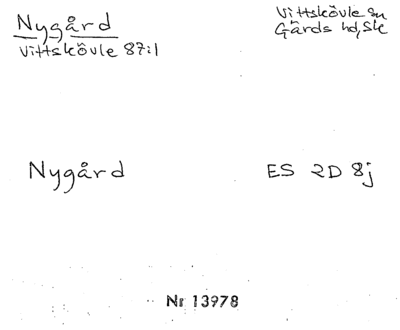 Nygård
Vittskövle 87:1
Vittskövle sn
Gärds hd, Sk
Nygård
ES 2D 8j
Nr 13978